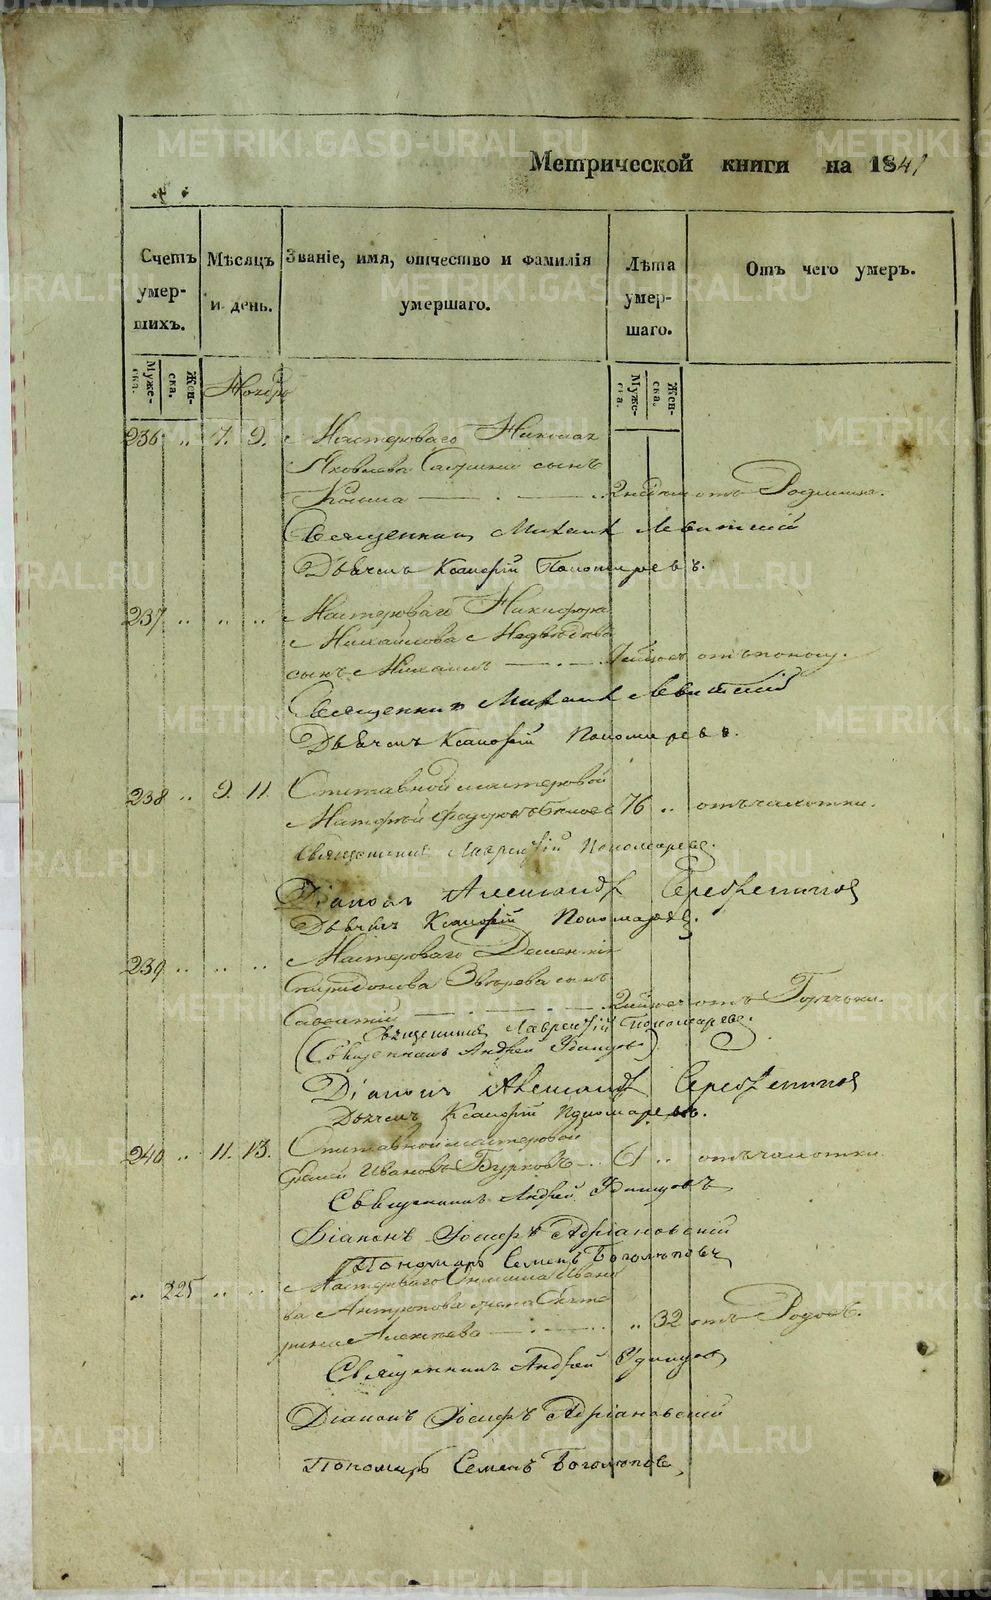 Метрической книги на 1841
Счетъ умер- шихъ.
Мѣсяцъ и день.
Званіе, имя, отчество и фамилія умершаго.
Лѣта умер- шаго.
Отъ чего умеръ.
Муже- ска.
Жен- ска.
Ноября
Муже- ска.
Жен- ска.
236 .. 7. 9. Мастероваго Николая
Яковлева сынъ
отъ Родимца.
Священникъ Михаилъ Левитскій
Дьячекъ Ксанорій Пономаревъ.
237 .. .. .. Мастероваго Никифора
Михайлова Медвѣдева
сынъ Михаилъ отъ поносу.
Священникъ Михаилъ Левитскій
Дьячекъ Ксанорій Пономаревъ.
238 .. 9. 11. Отставной мастеровой
Матфей Федоровъ 76 .. отъ чахотки.
Священникъ Лаврентій Пономаревъ.
Діаконъ Александръ Серебренниковъ
Дьячекъ Ксанорій Пономаревъ.
239. .. .. .. Мастероваго Дементія
Спиридонова Звѣрева сынъ
Саватій отъ Горячки.
Священникъ Лаврентій Пономаревъ.
(Священникъ Андрей Удинцовъ)
Діаконъ Александръ Серебренниковъ
Дьячекъ Ксанорій Пономаревъ.
240 .. 11. 13. Отставной мастеровой
Ивановъ Бурковъ 61 .. отъ чахотки
Священникъ Андрей Удинцовъ
Діаконъ Іосифъ Адріановскій
Пономарь Семенъ Боголюповъ
.. 225 .. .. Мастероваго Ивано
ва Антропова жена Екате
рина Алексѣева .. 32 отъ Родовъ.
Священникъ Андрей Удинцовъ
Діаконъ Іосифъ Адріановскій
Пономарь Семенъ Боголюповъ
METRIKI.GASO-URAL.RU